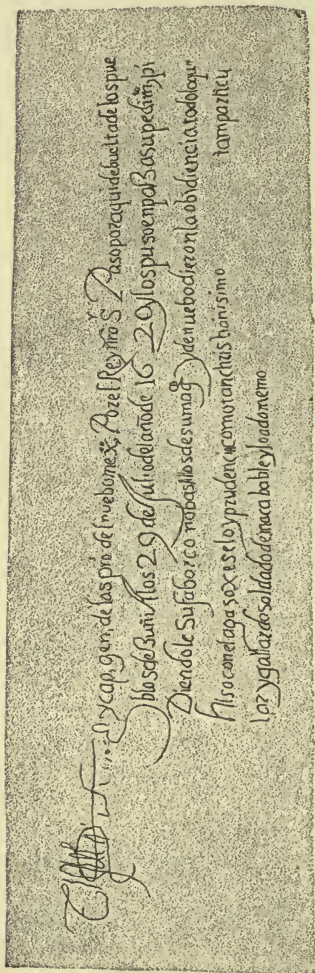 y cap. gen. de las pro de l nuebo mex Por el Rey nro Sr Paso por aqui de buelta de los pue
blos de Zuñi A los 29 de Julio del año de 1629 y los puso en paz a su pedimto pi
Diendole Su fabor co mo basallos de su mag y de nuebo dieron la obidiencia todo lo qu
Hiso con el agasaxe selo y prudencia como tan christianisimo tam particu
lar y gallardo soldado de inacabable y loado memo